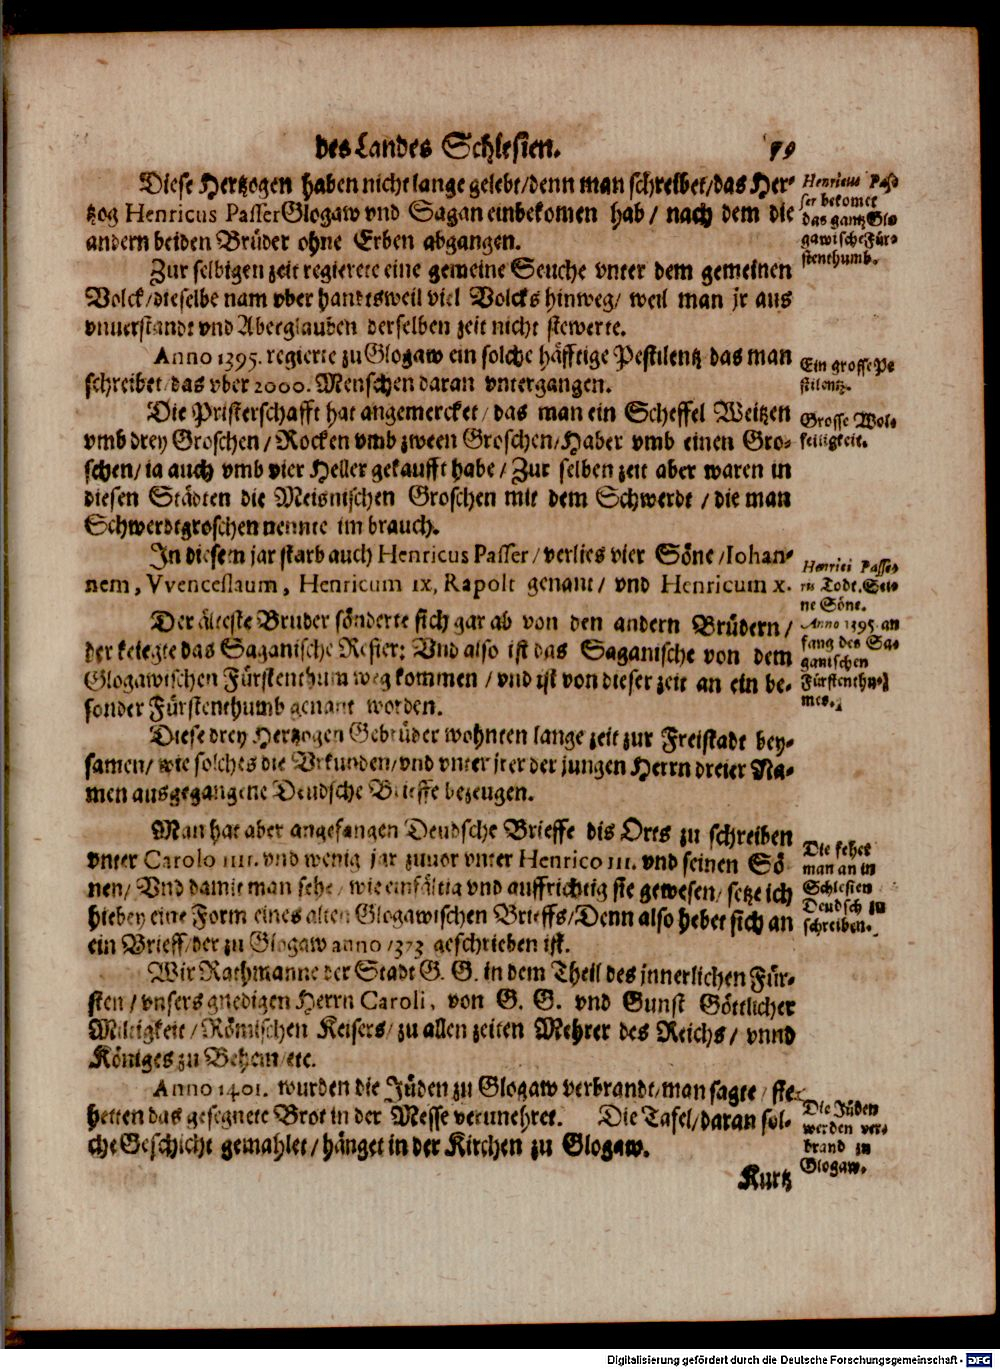 des Landes Schlesien. 79
Diese Hertzogen haben nicht lange gelebt/denn man schreibet/das Her-
tzog Henricus Passer Glogaw vnd Sagan einbekomen hab / nach dem die
andern beiden Brüder ohne Erben abgangen.
Henricus Pas-
ser bekomet
das gantz Glo
gawische Für-
stenthumb.
Zur selbigen zeit regierete eine gemeine Seuche vnter dem gemeinen
Volck/dieselbe nam vber handtsweil viel Volcks hinweg/ weil man jr aus
vnuerstandt vnd Aberglauben derselben zeit nicht stewerte.
Anno 1395. regierte zu Glogaw ein solche häfftige Pestilentz das man
schreibet/das vber 2000. Menschen daran vntergangen.
Ein grosse Pe
stilentz.
Die Pristerschafft hat angemercket/ das man ein Scheffel Weitzen
vmb drey Groschen / Rocken vmb zween Groschen/Haber vmb einen Gro-
schen/ ia auch vmb vier Heller gekaufft habe / Zur selben zeit aber waren in
diesen Städten die Meisnischen Groschen mit dem Schwerdt / die man
Schwerdtgroschen nennte im brauch.
Grosse Wol-
feiligkeit.
In diesem jar starb auch Henricus Passer / verlies vier Söne /Iohan-
nem, VVenceslaum, Henricum IX, Rapolt genant/ vnd Henricum X.
Henrici Passe-
rii Todt. Sei-
ne Söne.
Der älteste Bruder sönderte sich gar ab von den andern Brüdern /
der kriegte das Saganische Refier: Vnd also ist das Saganische von dem
Glogawischen Fürstenthum weg kommen / vnd ist von dieser zeit an ein be-
sonder Fürstenthumb genant worden.
Anno 1395. an
fang des Sa-
ganischen
Fürstenthu-
mes.
Diese drey Hertzogen Gebrüder wohnten lange zeit zur Freistadt bey-
samen/ wie solches die Vrkunden/vnd vnter jrer der jungen Herrn dreier Na-
men ausgegangene Deudsche Brieffe bezeugen.
Man hat aber angefangen Deudsche Brieffe dis Orts zu schreiben
vnter Carolo IIII. vnd wenig jar zuuor vnter Henrico III. vnd seinen Sö
nen/ Vnd damit man sehe / wie einfältig vnd auffrichtig sie gewesen/ setze ich
hiebey eine Form eines alten Glogawischen Brieffs/Denn also hebet sich an
ein Brieff/der zu Glogaw anno 1373 geschrieben ist.
Die fehet
man an in
Schlesien
Deudsch zu
schreiben.
Wir Rathmanne der Stadt G. G. in dem Theil des innerlichen Für-
sten / vnsers gnedigen Herrn Caroli, von G. G. vnd Gunst Göttlicher
Miltigkeit / Römischen Keisers/ zu allen zeiten Mehrer des Reichs / vnnd
Königes zu Behem/ etc.
Anno 1401. wurden die Jüden zu Glogaw verbrandt/man sagte / sie
hetten das gesegnete Brot in der Messe verunehret. Die Tafel/daran sol-
che Geschicht gemahlet / hänget in der Kirchen zu Glogaw.
Die Jüden
werden ver-
brand zu
Glogaw.
Kurtz
Digitalisierung gefördert durch die Deutsche Forschungsgemeinschaft - DFG